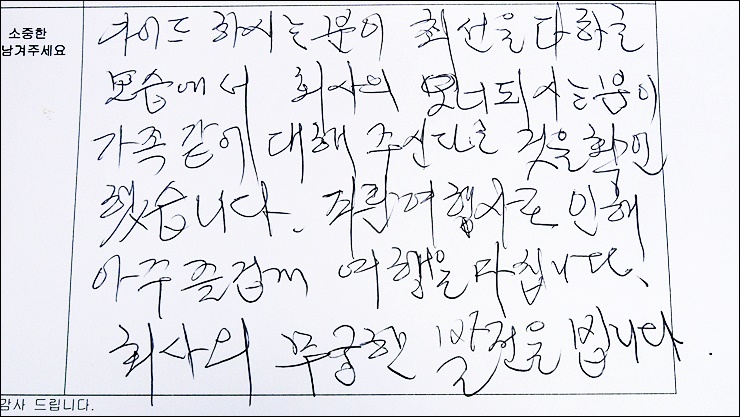 소중한
남겨주세요
가이드 하시는분이 최선을 다하는
모습에서 회사의 오너되시는분이
가족같이 대해 주신다는 것을 확인
했습니다. 파란여행사로 인해
아주 즐겁게 여행을 마칩니다.
회사의 무궁한 발전을 빕니다.
감사 드립니다.